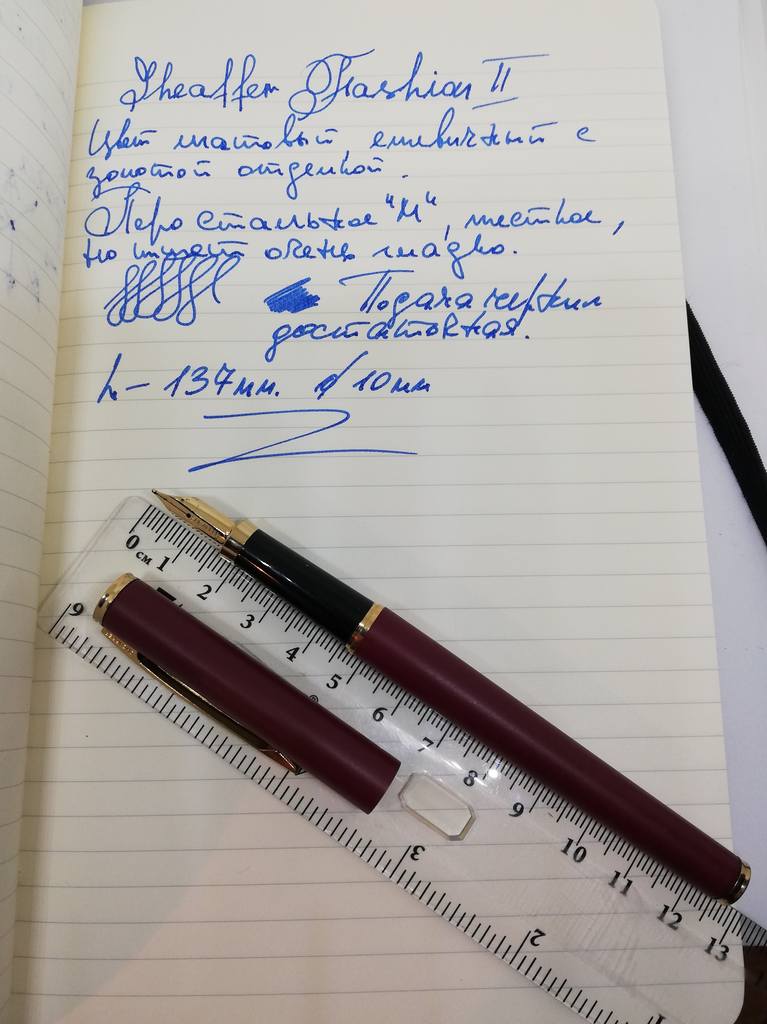 Sheaffer Fashion II
Цвет матовый, сливичный с
золотой отделкой.
Перо стальное "М", жесткое,
но пишет очень гладко.
Подача чернил
достаточная.
L – 137мм. ø 10мм
0 см 1 2 3 4 5 6 7 8 9 10 11 12 13
6 3 2 1